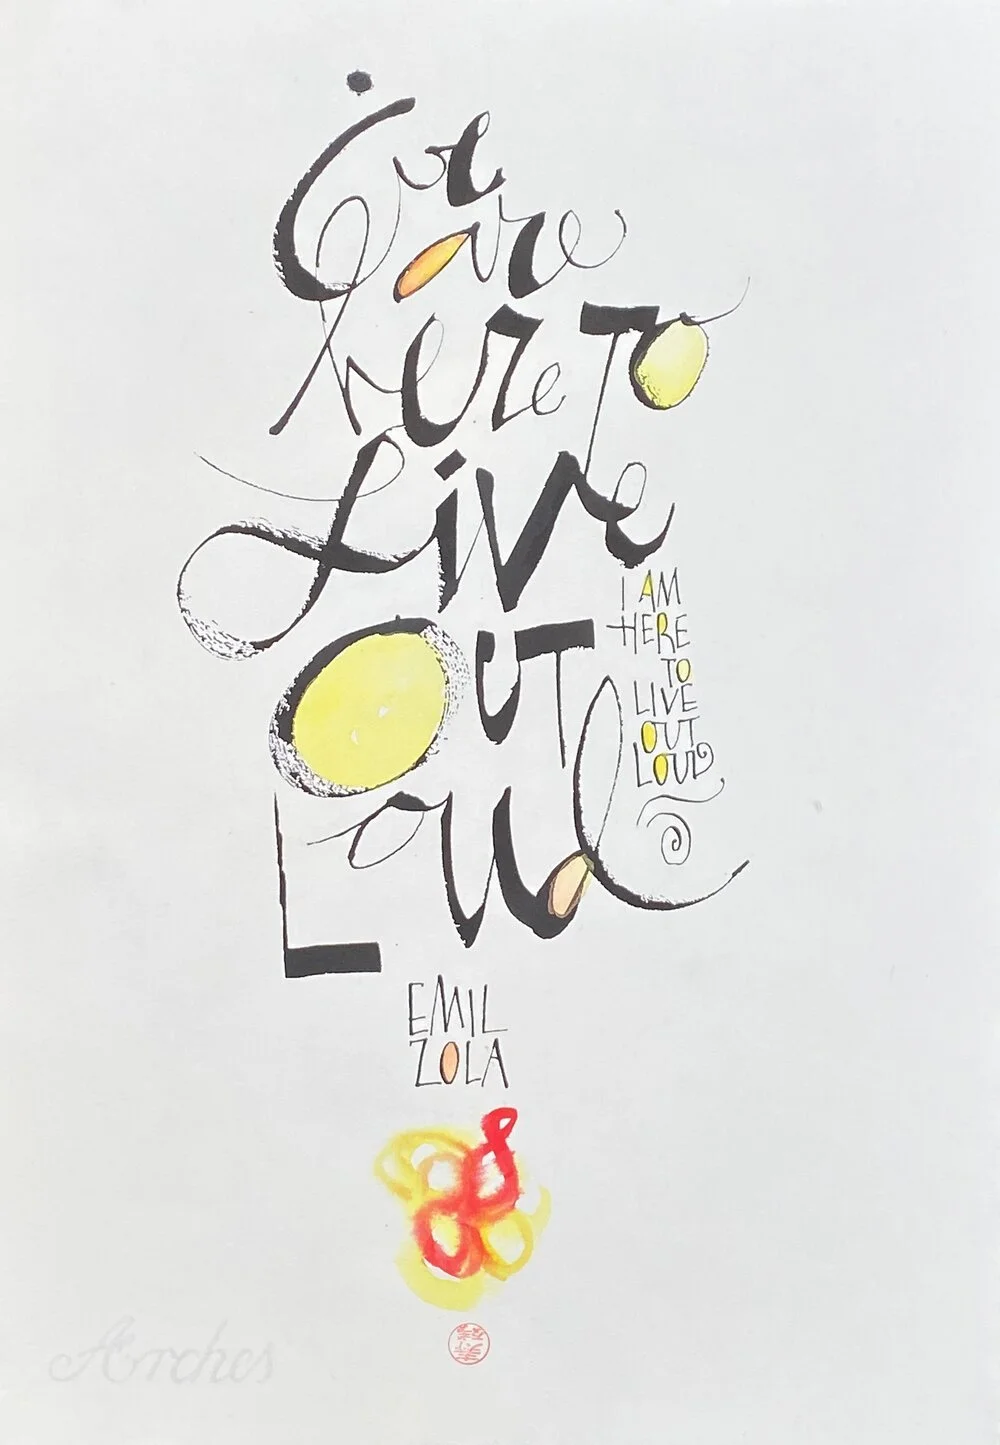 are
here To
Live
OUT
Loud
I AM
HERE
TO
LIVE
OUT
LOUD
EMIL
ZOLA
Arches